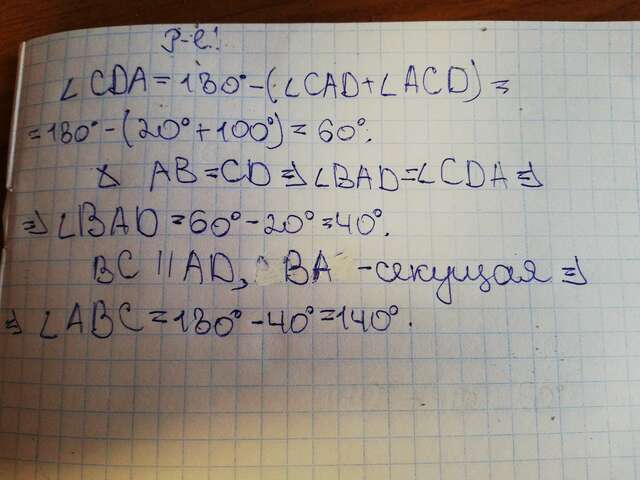 р-е!
∠CDA = 180° - (∠CAD + ∠ACD) =
= 180° - (20° + 100°) = 60°.
AB = CD ⇒ ∠BAD = ∠CDA ⇒
⇒ ∠BAD = 60° - 20° = 40°.
BC || AD, BA - секущая ⇒
⇒ ∠ABC = 180° - 40° = 140°.